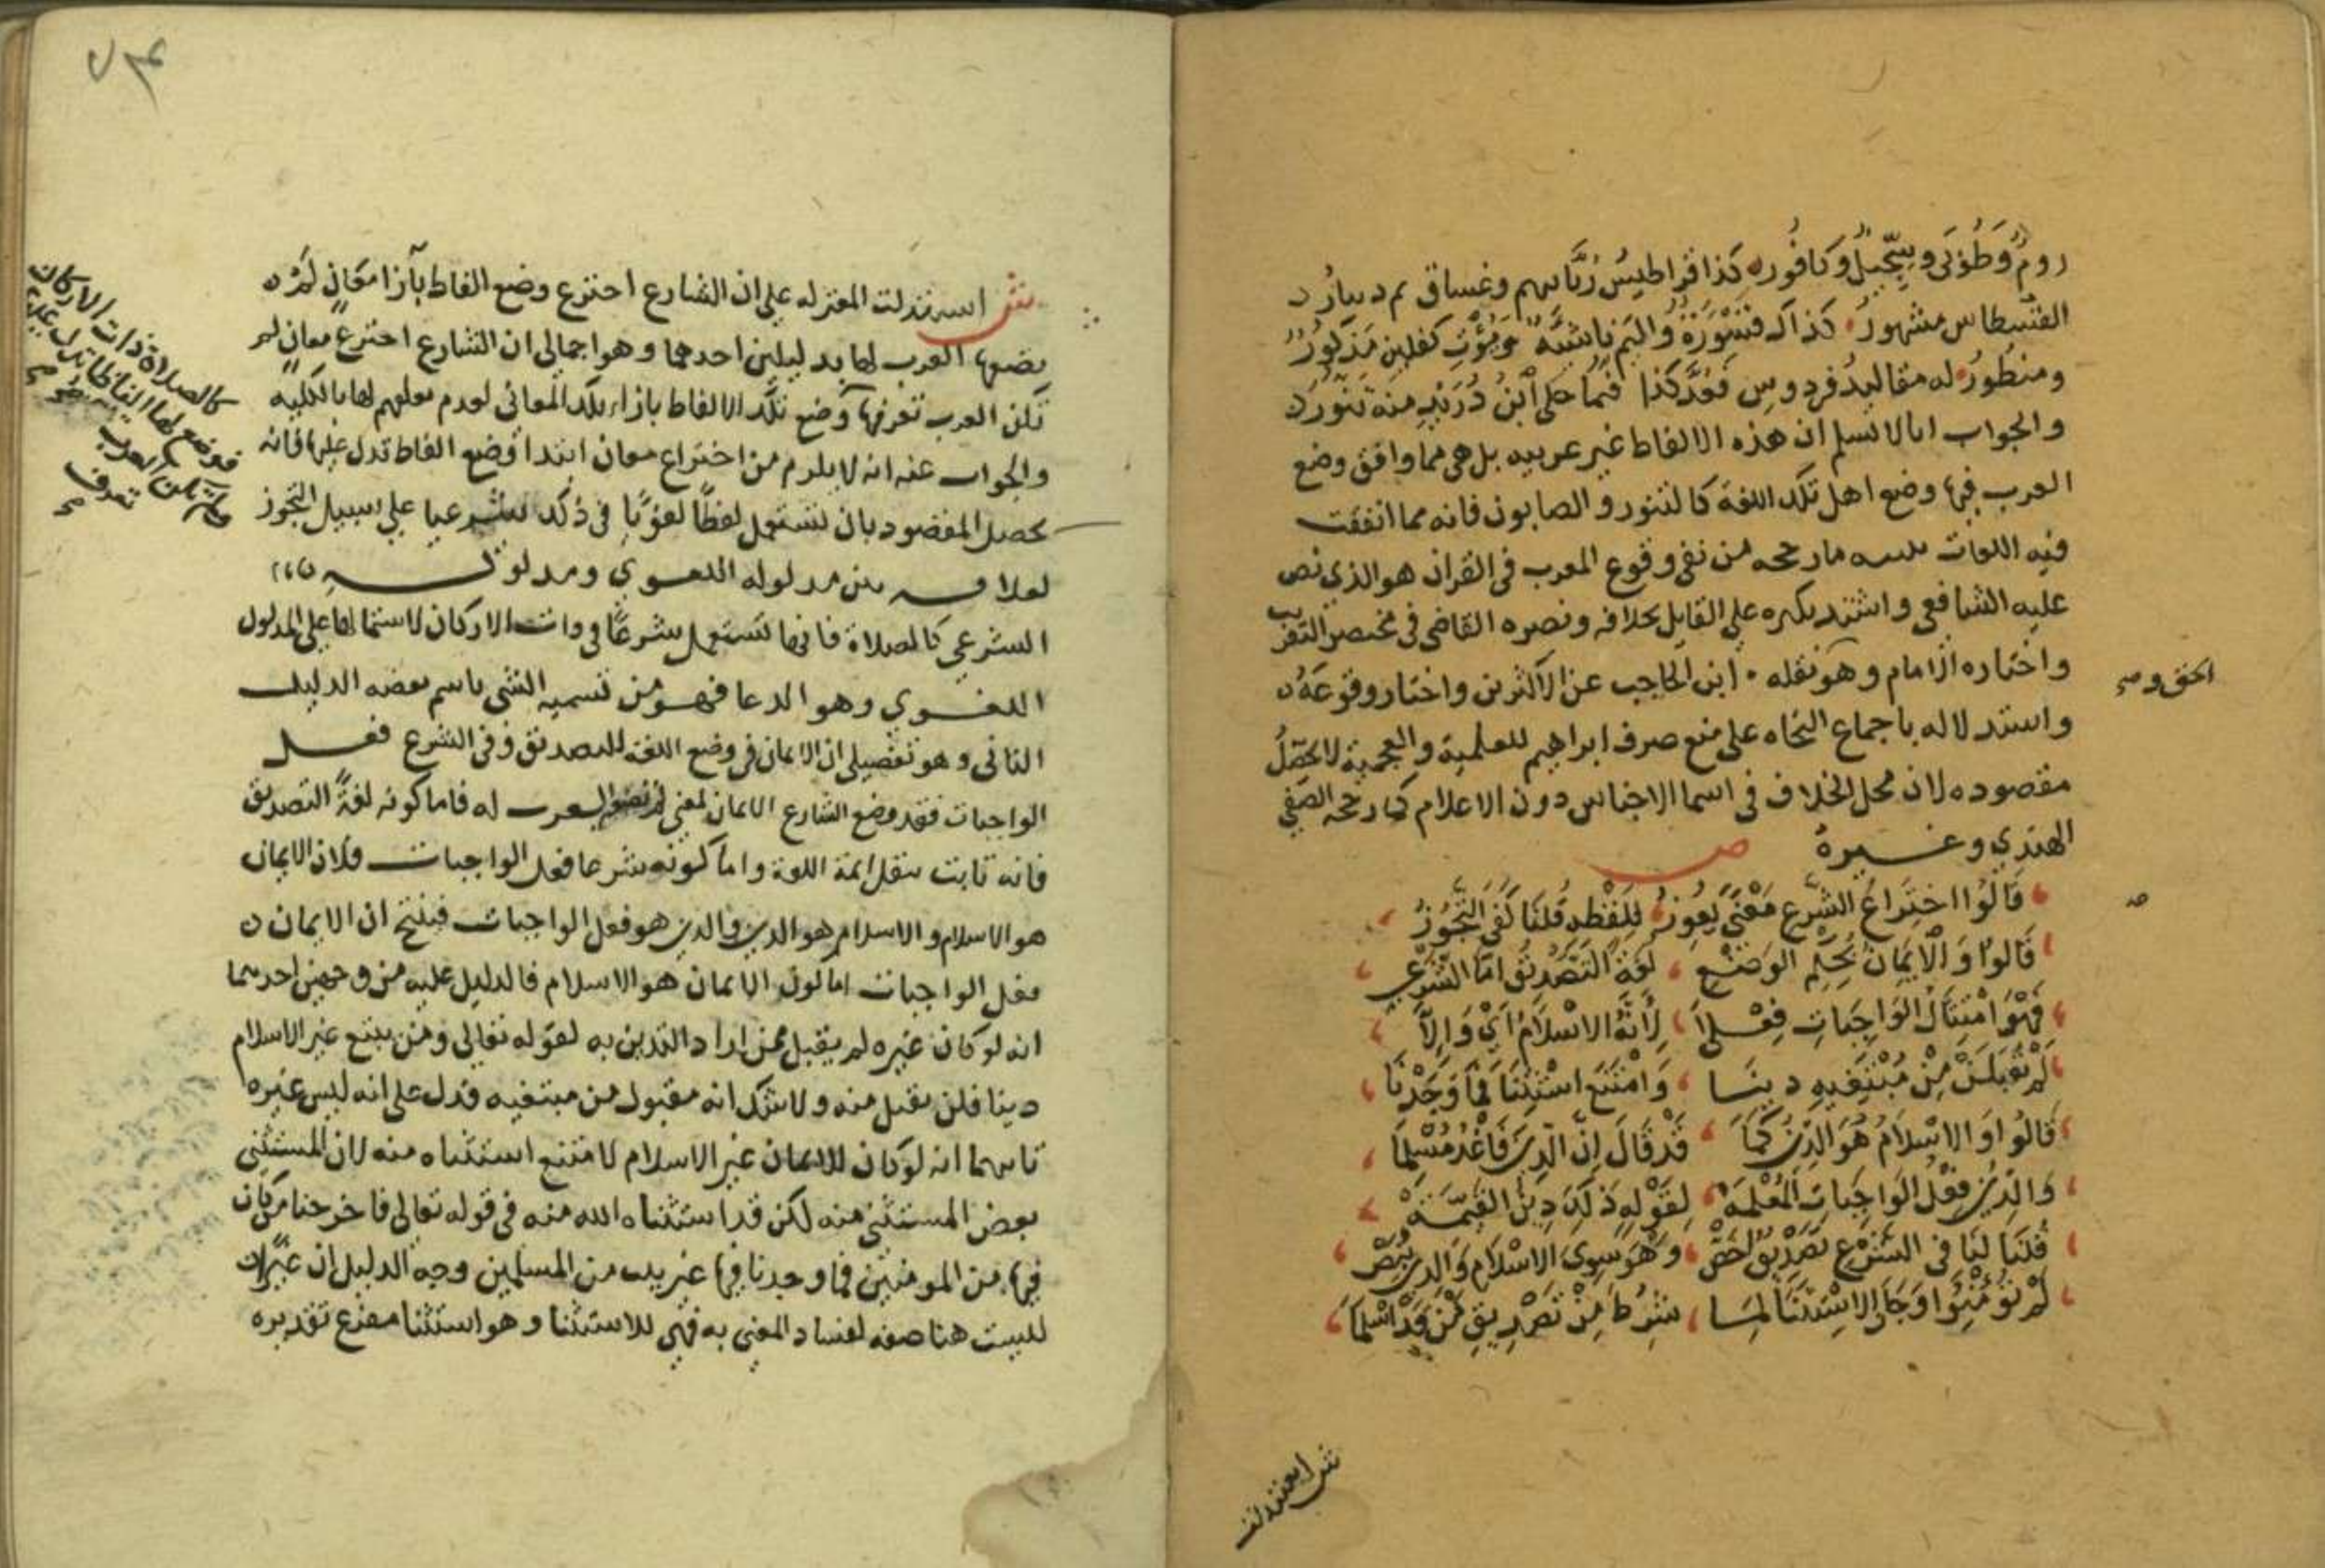 روم وطوبى وسجيل وكافور كذا قراطيس ربانيهم وغساق م دينار
القسطاس مشهور كذاك قسورة واليم ناشئة ويؤت كفلين مذكور
له مقاليد فردوس يعد كذا فيما حكى ابن دريد منه تنور
والجواب انا لا نسلم ان هذه الالفاظ غير عربيه بل هي مما وافق وضع
العرب فيها وضع اهل تلك اللغة كالتنور والصابون فانه مما اتفقت
فيه اللغات تنبيه ما رجحه من نفي وقوع المعرب في القران هو الذي نص
عليه الشافعي واشتد نكيره على القايل بخلافه ونصره القاضي في مختصر التقريب
واختاره الامام وهو نقله ابن الحاجب عن الاكثرين واختار وقوعه
الحق و صح
واستدلاله باجماع النحاه على منع صرف ابراهيم للعلمية والعجمية لا يحصل
مقصوده لان محل الخلاف في اسما الاجناس دون الاعلام كما رجحه الصفي
الهندي وغيره ص
قالوا اختراع الشرع معنى يعوز للفظه قلنا كفى التجوز
قالوا والايمان بحكم الوضع لغة التصديق اما الشرعي
فهو امتثال الواجبات فعلا لانه الاسلام اي والا
لم تقبلن من مبتغيه دينا وامتنع استثنا فما وجدنا
قالوا والاسلام هو الدين كما قد قال ان الدين فاغد مسلما
والدين فعل الواجبات المعلمة لقوله ذلك دين القيمة
قلنا لنا في الشرع تصديق اخص وهو سوى الاسلام والدين بنص
لم تؤمنوا وجاء الاستثنا لما شرط من تصديق من قد اسلما
ش استدلت
ش استدلت المعتزله على ان الشارع اخترع وضع الفاظ بازا معان لم
يضعها العرب لها بدليلين احدهما وهو اجمالي ان الشارع اخترع معان لم
تكن العرب تعرفها وضع تلك الالفاظ بازاء تلك المعاني لعدم تعلقهم لها بالكليه
كالصلاة ذات الاركان
فوضع لها الفاظا تدل عليها
ولم تكن العرب
تعرف
والجواب عنه انه لا يلزم من اختراع معان ابتدا وضع الفاظ تدل عليها فانه
يحصل المقصود بان تستعمل لفظا لغويا في ذلك شرعيا على سبيل التجوز
لعلاقه بين مدلوله اللغوي ومدلوله
الشرعي كالصلاة فانها تستعمل شرعا في ذات الاركان لاشتمالها على المدلول
اللغوي وهو الدعا فهو من تسميه الشي باسم بعضه الدليل
الثاني وهو تفصيلي ان الايمان في وضع اللغة للتصديق وفي الشرع فعل
الواجبات فقد وضع الشارع الايمان لمعنى لم تضعه العرب له فاما كونه لغة التصديق
فانه ثابت بنقل ائمة اللغة واما كونه شرعا فعل الواجبات فلان الايمان
هو الاسلام والاسلام هو الدين والدين هو فعل الواجبات فينتج ان الايمان
فعل الواجبات اما كون الايمان هو الاسلام فالدليل عليه من وجهين احدهما
انه لو كان غيره لم يقبل ممن اراد التدين به لقوله تعالى ومن يبتغ غير الاسلام
دينا فلن يقبل منه ولا شك انه مقبول من مبتغيه فدل على انه ليس غيره
ثانيهما انه لو كان للايمان غير الاسلام لامتنع استثناه منه لان المستثنى
بعض المستثنى منه لكن قد استثناه الله منه في قوله تعالى فاخرجنا من كان
فيها من المومنين فما وجدنا فيها غير بيت من المسلمين وجه الدليل ان غير
ليست هنا صفه لفساد المعنى به فهي للاستثنا وهو استثنا مفرغ تقديره